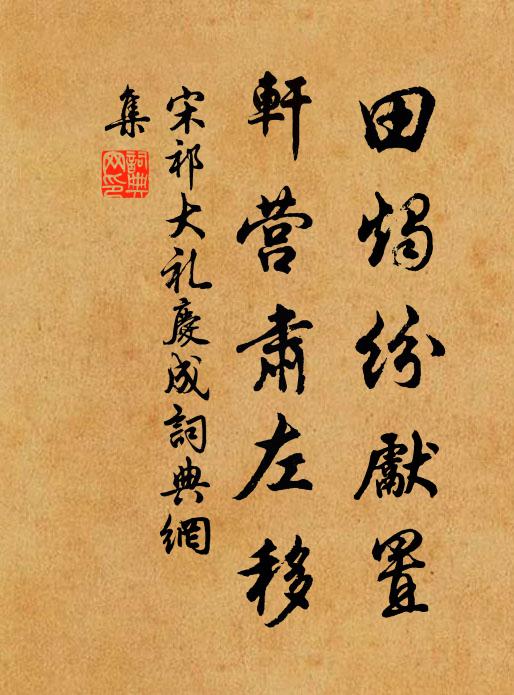 田燭紛獻置
軒营肅左移
宋祁大礼慶成詞典網
集
詞典網印